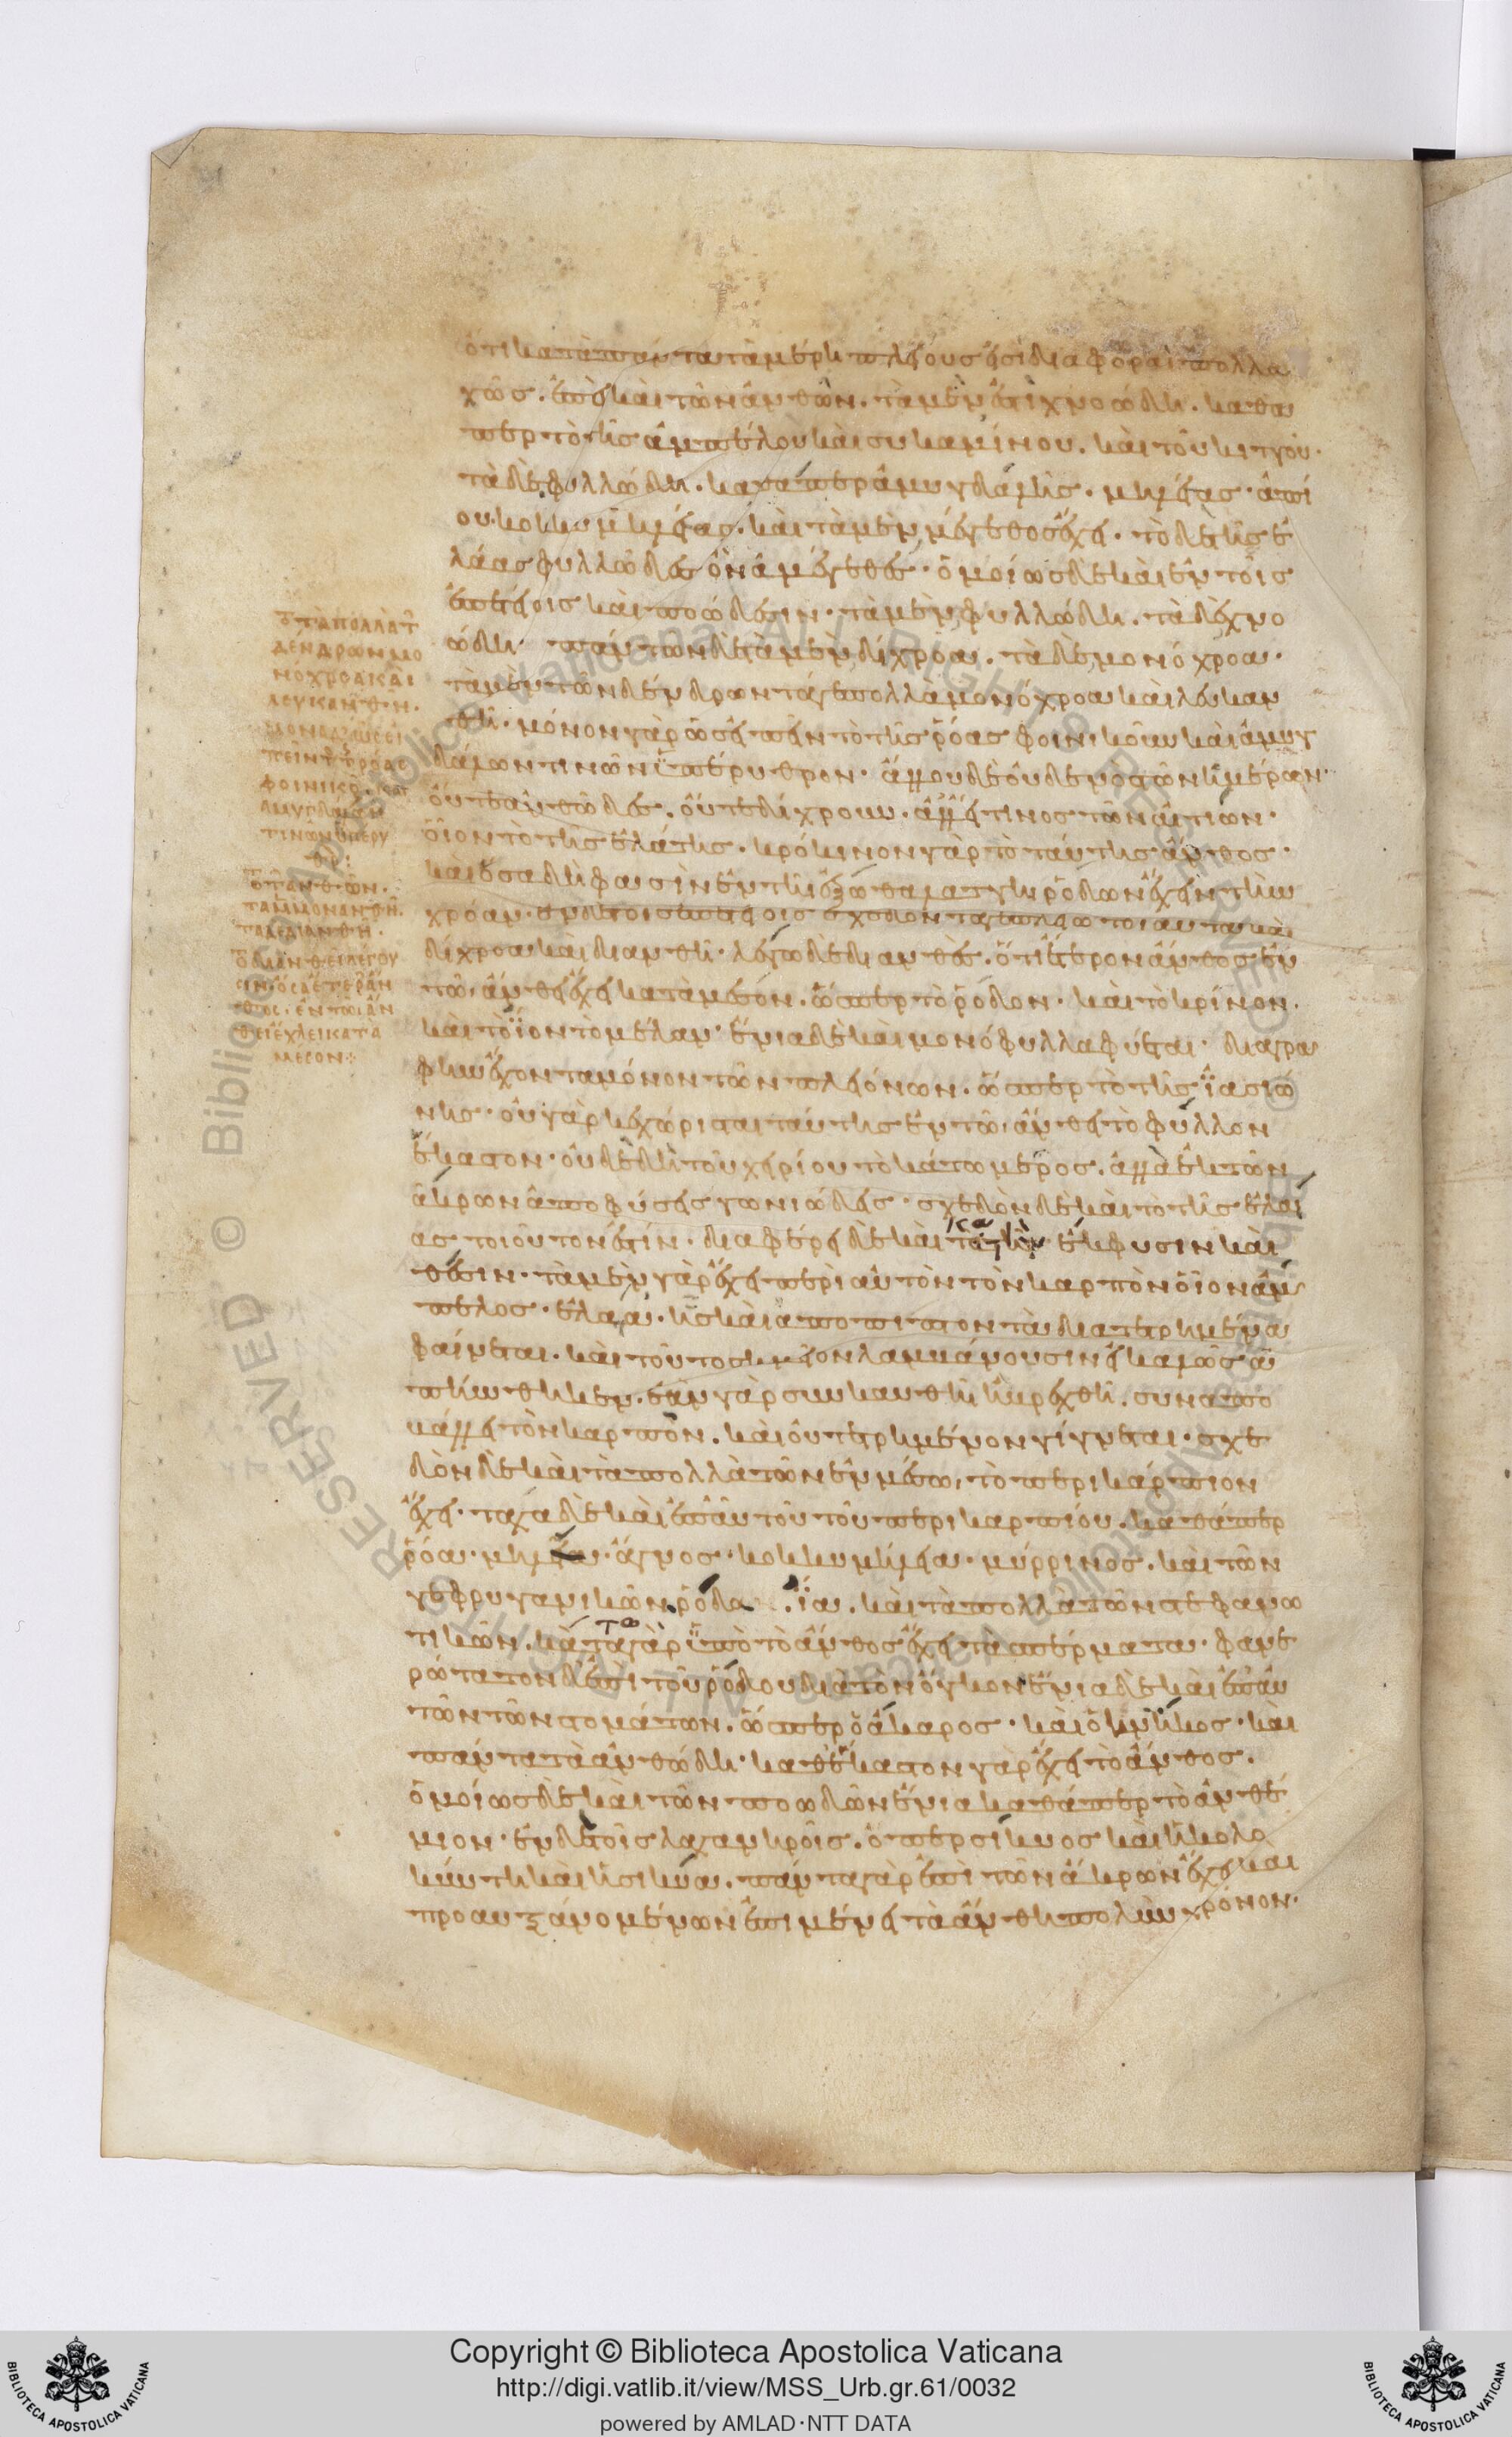 ὅτι κατὰ πάντα τὰ μέρη πλείους εἰσὶ διαφοραὶ πολλα
χῶς. ἐπεὶ καὶ τῶν ἀνθῶν. τὰ μέν ἐστι χνοώδη. καθά
περ τὸ τῆς ἀμπέλου καὶ συκαμίνου. καὶ τοῦ κιττοῦ.
τὰ δὲ φυλλώδη. καθάπερ ἀμυγδαλῆς. μηλέας. ἀπί
ου. κοκκυμηλέας. καὶ τὰ μὲν μέγεθος ἔχει. τὸ δὲ τῆς ἐ
λάας φυλλῶδες ὂν ἀμέγεθες. ὁμοίως δὲ καὶ ἐν τοῖς
ἐπετείοις καὶ ποώδεσιν. τὰ μὲν φυλλώδη. τὰ δὲ χνο
ώδη. πάντων δὲ τὰ μὲν δίχροα. τὰ δὲ μονόχροα.
τὰ μὲν τῶν δένδρων τά γε πολλὰ μονόχροα καὶ λευκαν
θῆ. μόνον γὰρ ὡς εἰπεῖν τὸ τῆς ῥόας φοινικοῦν καὶ ἀμυγ
δαλῶν τινῶν ὑπέρυθρον. ἄλλου δὲ οὐδενὸς τῶν ἡμέρων.
οὔτε ἀνθῶδες. οὔτε δίχρουν. ἀλλ' εἴ τινος τῶν αιτιων.
οἷον τὸ τῆς ἐλάτης. κρόκινον γὰρ τὸ ταύτης ἄνθος.
καὶ ὅσα δή φασιν ἐν τῇ ἔξω θαλάττῃ ῥόδων ἔχειν τὴν
χρόαν. ἐν δὲ τοῖς ἐπετείοις σχεδὸν τά γε πλείω τοιαῦτα καὶ
δίχροα καὶ διανθῆ. λέγω δὲ διανθὲς. ὅτι ἕτερον ἄνθος ἐν
τῷ ἄνθει ἔχει κατὰ μέσον. ὥσπερ τὸ ῥόδον. καὶ τὸ κρίνον.
καὶ τὸ ἴον τὸ μέλαν. ἔνια δὲ καὶ μονόφυλλα φύεται. διαγρα
φὴν ἔχοντα μόνον τῶν πλειόνων. ὥσπερ τὸ τῆς ἰασιώ
νης. οὐ γὰρ κεχώρισται ταύτης ἐν τῷ ἄνθει τὸ φύλλον
ἕκαστον. οὐδὲ δὴ τοῦ χειρίου τὸ κάτω μέρος. ἀλλὰ ἐκ τῶν
ἄκρων ἀποφύσεις γωνιώδεις. σχεδὸν δὲ καὶ τὸ τῆς ἐλαί
ας τοιοῦτον ἐστίν. διαφέρει δὲ καὶ κατὰ τὴν ἔκφυσιν καὶ
θέσιν. τὰ μὲν γὰρ ἔχει περὶ αὐτὸν τὸν καρπὸν οἷον ἄμ
πελος. ἐλάα. ἧς καὶ ἀποπίπτοντα διατετρημένα
φαίνεται. καὶ τοῦτο σημεῖον λαμβάνουσιν εἰ καλῶς ἀ
πήνθηκεν. ἐὰν γὰρ συγκαυθῇ ἢ βρεχθῇ. συναπο
βάλλει τὸν καρπὸν. καὶ οὐ τετρημένον γίγνεται. σχε
δὸν δὲ καὶ τὰ πολλὰ τῶν ἐν μέσῳ τὸ περικάρπιον
ἔχει. τάχα δὲ καὶ ἐπ' αὐτοῦ τοῦ περικαρπίου. καθάπερ
ῥόα. μηλέα. ἄγνος. κοκκυμηλέα. μύρρινος. καὶ τῶν
γε φρυγανικῶν. ῥόδα. ἴα. καὶ τὰ πολλὰ τῶν στεφανω
τικῶν. κάτω τὰ γὰρ ὑπὸ τὸ ἄνθος ἔχει τὰ σπέρματα. φανε
ρώτατον δ' ἐπὶ τοῦ ῥόδου διὰ τὸν ὄγκον ἔνια δὲ καὶ ἐπ' αὐ
τῶν τῶν στομάτων. ὥσπερ ὁ ἄκαρος. καὶ ὁ κνῆκος. καὶ
πάντα τὰ ἀνθώδη. καθ' ἕκαστον γὰρ ἔχει τὸ ἄνθος.
ὁμοίως δὲ καὶ τῶν ποωδῶν ἔνια καθάπερ τὸ ἄνθε
μον. ἐν δὲ τοῖς λαχανηροῖς. ὅ περ σίκυος καὶ ἡ κολο
κύντη καὶ ἡ σικύα. πάντα γὰρ ἐπὶ τῶν ἄκρων ἔχει καὶ
προαυξανομένων ἐπιμένει τὰ ἄνθη πολὺν χρόνον.
ὅτι τὰ πολλὰ τῶν
δένδρων μο
νόχροα καὶ
λευκανθῆ.
μόνον δὲ ὡς εἰ
πεῖν τὸ τῆς ῥόας
φοινικὸν. καὶ
ἀμυγδαλῶν
τινῶν ὑπέρυ
θρ:
ὅτι ἀνθῶν.
τὰ μὲν μονανθῆ.
τὰ δὲ διανθῆ.
ὅτι διανθεῖ λέγου
σιν ὅσα ἕτερον ἄν
θος. ἐν τῶ ἄν
θει ἔχει κατὰ
μέσον:
Copyright © Biblioteca Apostolica Vaticana
http://digi.vatlib.it/view/MSS_Urb.gr.61/0032
powered by AMLAD·NTT DATA